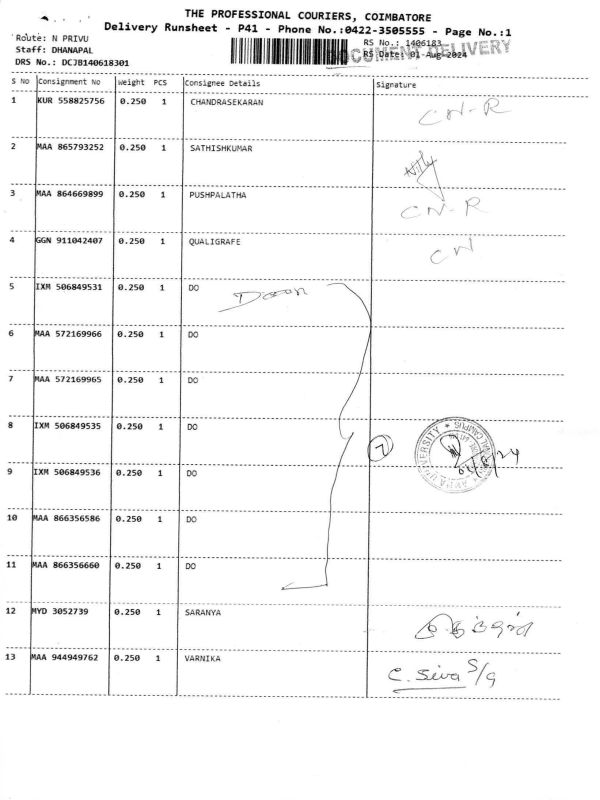 THE PROFESSIONAL COURIERS, COIMBATORE
Delivery Runsheet - P41 - Phone No.:0422-3505555 - Page No.:1
Route: N PRIVU
RS No.: 1406183
Staff: DHANAPAL
RS Date: 01-Aug-2024
DOCUMENT DELIVERY
DRS No.: DCJB140618301
S No Consignment No Weight PCS Consignee Details Signature
1 KUR 558825756 0.250 1 CHANDRASEKARAN CN-R
2 MAA 865793252 0.250 1 SATHISHKUMAR
3 MAA 864669899 0.250 1 PUSHPALATHA CN-R
4 GGN 911042407 0.250 1 QUALIGRAFE CN
5 IXM 506849531 0.250 1 DO
6 MAA 572169966 0.250 1 DO
7 MAA 572169965 0.250 1 DO
8 IXM 506849535 0.250 1 DO
7
9 IXM 506849536 0.250 1 DO
10 MAA 866356586 0.250 1 DO
11 MAA 866356660 0.250 1 DO
12 MYD 3052739 0.250 1 SARANYA
13 MAA 944949762 0.250 1 VARNIKA C. Siva S/G